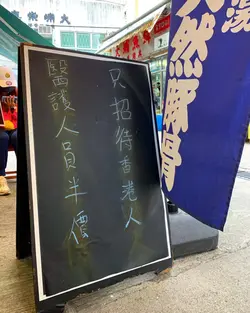 只招待香港人
醫護人員半價
天然豚骨